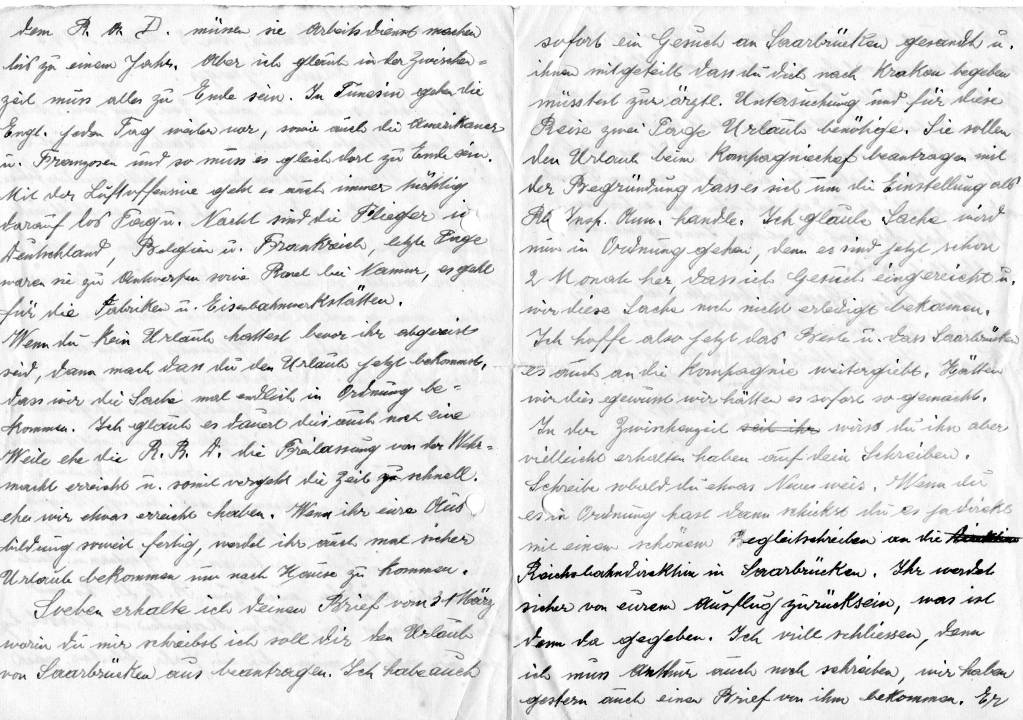 dem R. A. D. müssen sie Arbeitsdienst machen
bis zu einem Jahr. Aber ich glaub in der Zwischen=
zeit muss alles zu Ende sein. In Tunesien gehen die
Engl. jeden Tag weiter vor, sowie auch die Amerikaner
u. Franzosen und so muss es gleich dort zu Ende sein.
Mit der Luftoffensive geht es auch immer tüchtig
darauf los Tag u. Nacht sind die Flieger in
Deutschland, Belgien u. Frankreich, letzte Tage
waren sie zu Antwerpen sowie bei Namur, es geht
für die Fabriken u. Eisenbahnwerkstätten.
Wenn du kein Urlaub hattest bevor ihr abgereist
seid, dann mach dass du den Urlaub jetzt bekommst,
dass wir die Sache mal endlich in Ordnung be=
kommen. Ich glaub es dauert dies auch noch eine
Weile ehe die R. B. D. die Freilassung von der Wehr=
macht erreicht u. somit vergeht die Zeit zu schnell.
ehe wir etwas erreicht haben. Wenn ihr eure Aus
bildung soweit fertig, werdet ihr auch mal sicher
Urlaub bekommen um nach Hause zu kommen.
Soeben erhalte ich deinen Brief vom 31 März
worin du mir schreibst ich soll dir den Urlaub
von Saarbrücken aus beantragen. Ich habe auch
sofort ein Gesuch an Saarbrücken gesandt u.
ihnen mitgeteilt dass du dich nach Krakau begeben
müsstest zur ärztl. Untersuchung und für diese
Reise zwei Tage Urlaub benötige. Sie sollen
den Urlaub beim Kompagniechef beantragen mit
der Begründung dass es sich um die Einstellung als
Rb. Insp. Anw. handle. Ich glaube Sache wird
nun in Ordnung gehen, denn es sind jetzt schon
2 Monate her dass ich Gesuch eingereicht u.
wir diese Sache noch nicht erledigt bekamen.
Ich hoffe also jetzt das Beste u. dass Saarbrücken
es auch an die Kompagnie weitergiebt. Hätten
wir dies gewusst wir hätten es sofort so gemacht.
In der Zwischenzeit seit ihr wirst du ihn aber
vielleicht erhalten haben auf dein Schreiben.
Schreibe sobald du etwas Neues weis. Wenn du
es in Ordnung hast dann schickst du es ja direkt
mit einem schönem Begleitschreiben an die
Reichsbahndirektion in Saarbrücken. Ihr werdet
sicher von eurem Ausflug zurücksein, was ist
denn da gegeben. Ich will schliessen, denn
ich muss Arthur auch noch schreiben, wir haben
gestern auch einen Brief von ihm bekommen. Er